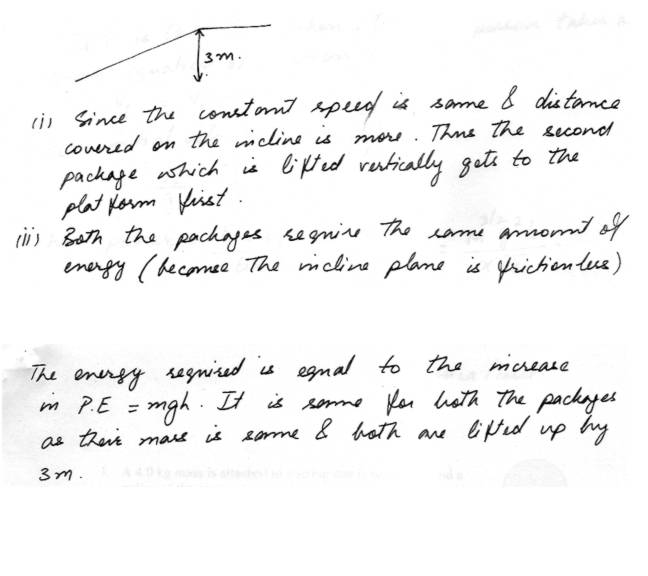 3m.
(i) Since the constant speed is same & distance
covered on the incline is more. Thus the second
package which is lifted vertically gets to the
platform first.
(ii) Both the packages require the same amount of
energy (because The incline plane is frictionless)
The energy required is equal to the increase
in P.E = mgh. It is same for both The packages
as their mass is same & both are lifted up by
3m.